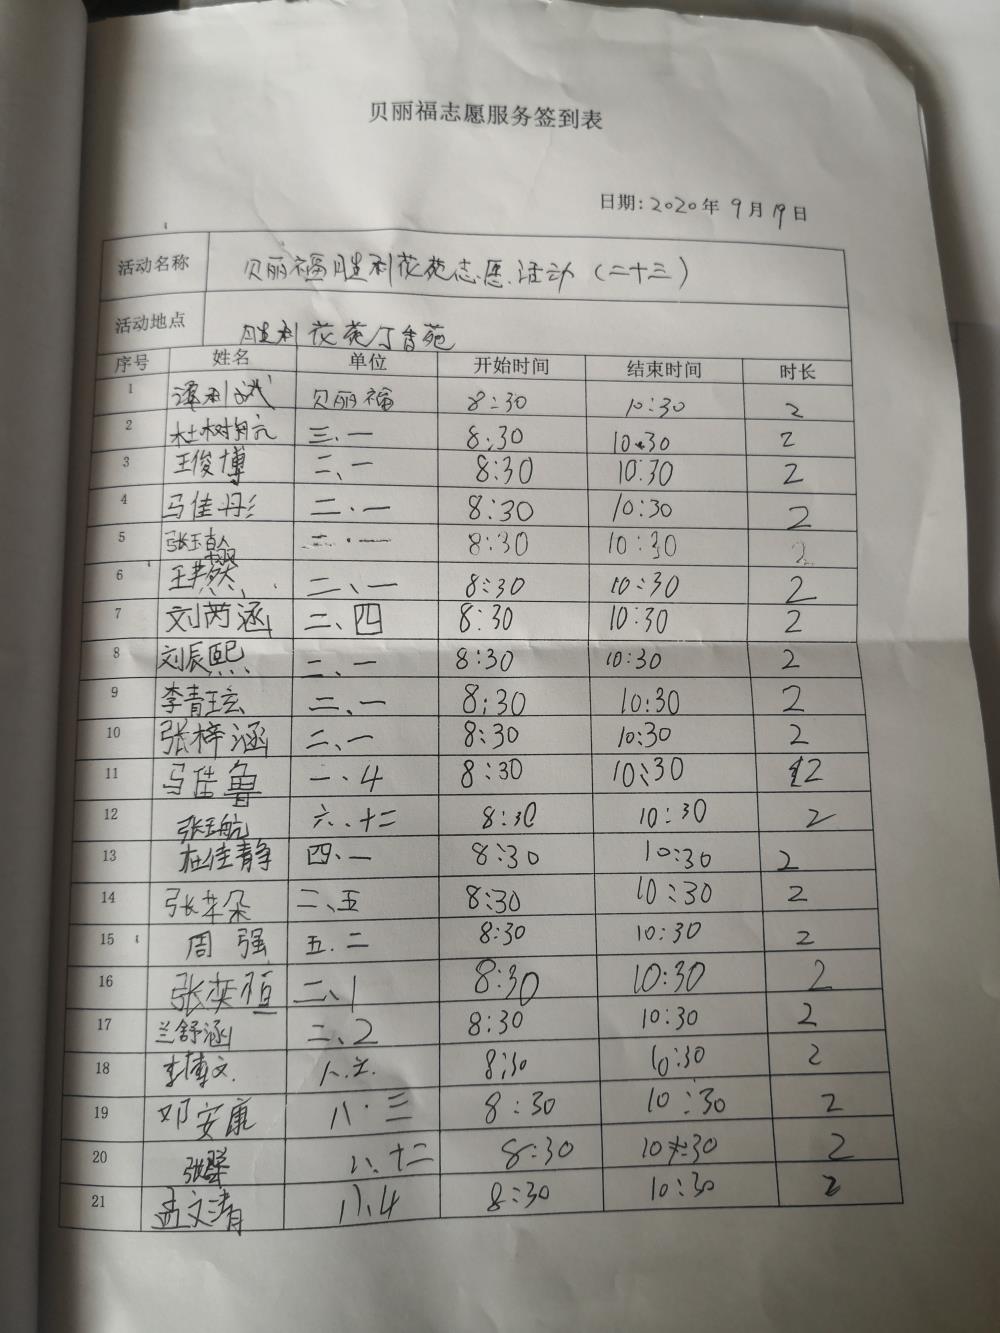 贝丽福志愿服务签到表
日期:2020年9月19日
活动名称 贝丽福胜利花苑志愿活动(二十三)
活动地点 胜利花苑丁香苑
序号 姓名 单位 开始时间 结束时间 时长
1 贝丽福 8:30 10:30 2
2 三、一 8:30 10:30 2
3 王俊博 二、一 8:30 10:30 2
4 马佳彤 二、一 8:30 10:30 2
5 二、一 8:30 10:30 2
6 二、一 8:30 10:30 2
7 刘芮涵 二、四 8:30 10:30 2
8 刘辰熙 二、一 8:30 10:30 2
9 李青玹 二、一 8:30 10:30 2
10 张梓涵 二、一 8:30 10:30 2
11 马佳鲁 一、4 8:30 10:30 2
12 张钰航 六、十二 8:30 10:30 2
13 杜佳静 四、一 8:30 10:30 2
14 张苯朵 二、五 8:30 10:30 2
15 周强 五.二 8:30 10:30 2
16 张奕恒 二、1 8:30 10:30 2
17 兰舒涵 二、2 8:30 10:30 2
18 李博文 8:30 10:30 2
19 邓安康 八·三 8:30 10:30 2
20 八、十二 8:30 10:30 2
21 孟文清 八、4 8:30 10:30 2